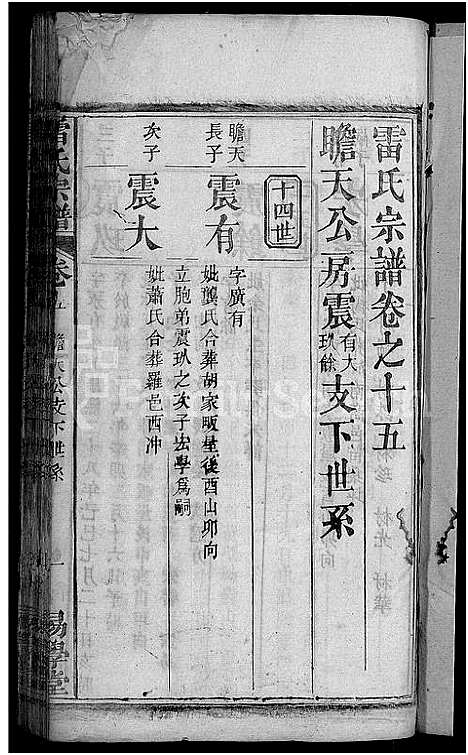 雷氏宗譜卷之十五
瞻天公房震有大玖餘支下世系
十四世
瞻天長子
震有
字廣有
妣龔氏合葬胡家畈堂後酉山卯向
立胞弟震玖之次子宏學為嗣
次子
震大
妣蕭氏合葬羅邑西冲
雷氏宗譜
卷
五
瞻天公支下世系
一
易學堂